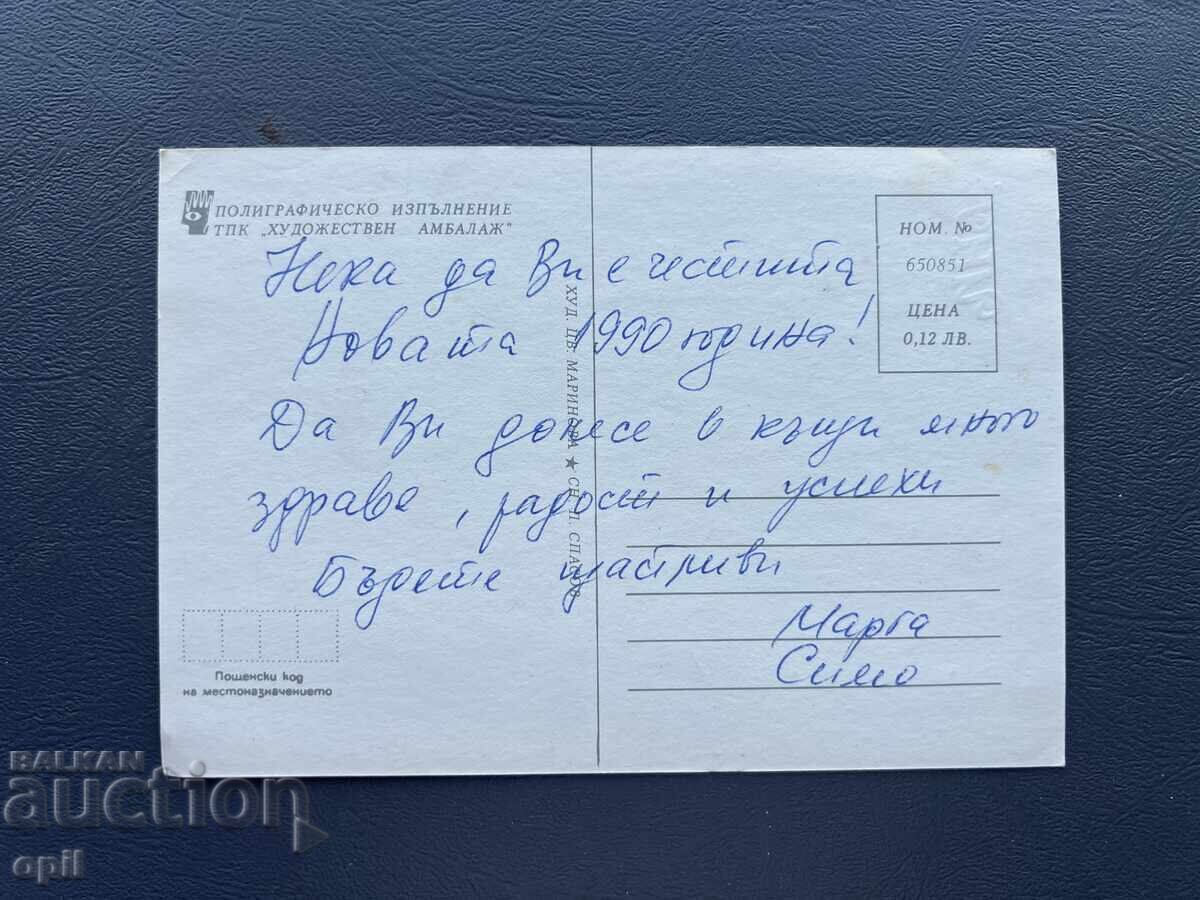 ПОЛИГРАФИЧЕСКО ИЗПЪЛНЕНИЕ
ТПК „ХУДОЖЕСТВЕН АМБАЛАЖ"
НОМ. №
650851
ЦЕНА
0,12 ЛВ.
Нека да Ви е честита
Новата 1990 година!
Да Ви донесе в къщи много
здраве, радост и успехи
Бъдете щастливи
Марга
Симо
ХУД. ЦВ. МАРИНОВА ★ СН. П. СПАСОВ
Пощенски код
на местоназначението
BALKAN
auction
opil